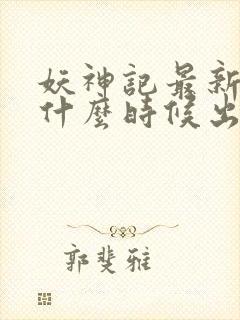 妖神記最新
什麼時候出
郭斐雅